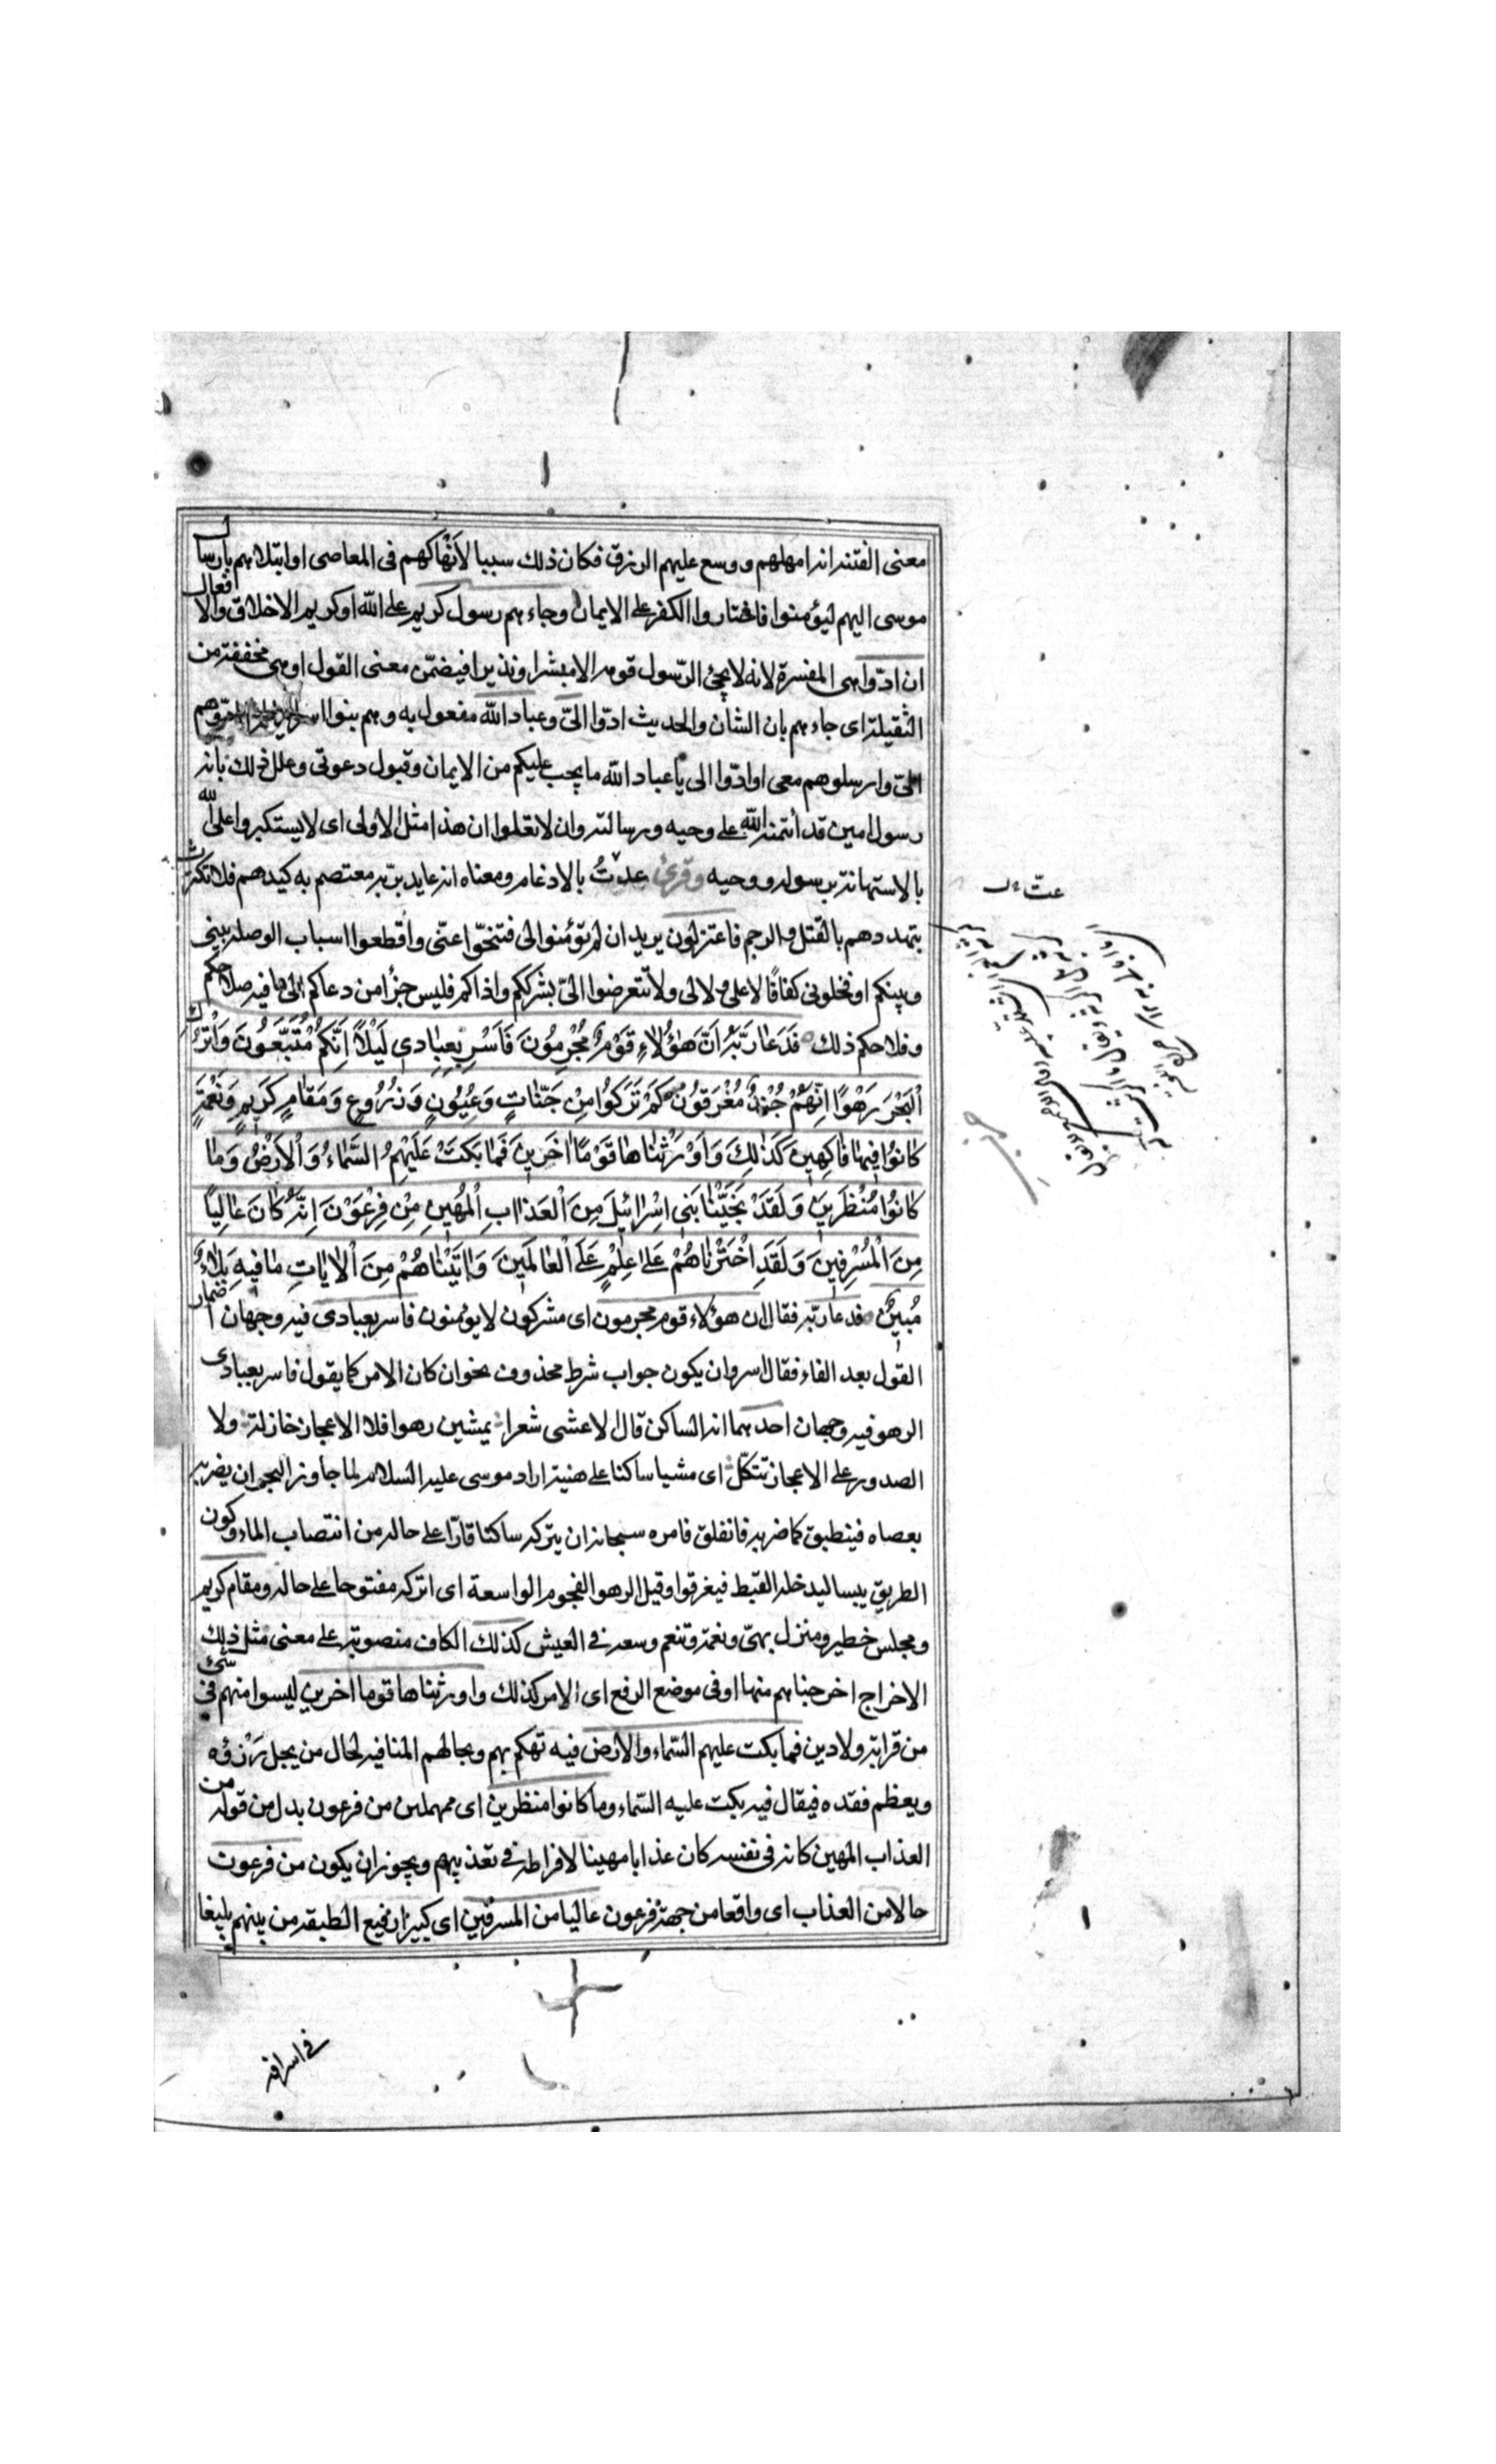 معنى الفتنة انه امهلهم ووسع عليهم الرزق فكان ذلك سببا لانهاكهم فى المعاصى او ابتلاهم بارسال
موسى اليهم ليؤمنوا فاختاروا الكفر على الايمان وجاءهم رسول كريم على الله او كريم الاخلاق والافعال
ان ادّوا هى المفسرة لانه لا يجئ الرّسول قومه الا مبشرا ونذيرا فيضمّن معنى القول او هى مخففة من
الثقيلة اى جاءهم بان الشان والحديث ادّوا الىّ وعباد الله مفعول به وهم بنوا ادّوهم
الىّ وارسلوهم معى او ادّوا الى يا عباد الله ما يجب عليكم من الايمان وقبول دعوتى وعلل ذلك بانه
رسول امين قد أتمنه الله على وحيه ورسالته وان لا تعلوا ان هذا مثل الاولى اى لا يستكبروا على الله
بالاستهانة برسوله ووحيه وقرئ عدتُ بالادغام ومعناه انه عايد بربّه معتصم به كيدهم فلا تكترث
بتهددهم بالقتل والرجم فاعتزلون يريد ان لم تؤمنوا لى فتنحّوا عنّى واقطعوا اسباب الوصلة بينى
وبينكم او فخلونى كفافًا لا على ولا لى ولا تتعرضوا الىّ بشرككم واذاكم فليس جزأ من دعاكم الى ما فيه صلاحكم
وفلاحكم ذلك فَدَعَا رَبَّهُ اَنَّ هٰؤُلاءِ قَوْمٌ مُجْرِمُونَ فَاَسْرِ بِعِبَادِى لَيْلًا اِنَّكُمْ مُتَّبَعُونَ وَاتْرُكِ
الْبَحْرَ رَهْوًا اِنَّهُمْ جُنْدٌ مُغْرَقُونَ كَمْ تَرَكُوا مِنْ جَنّاتٍ وَعُيُونٍ وَزُرُوعٍ وَمَقَامٍ كَرِيمٍ وَنَعْمَةٍ
كَانُوا فِيهَا فَاكِهِينَ كَذٰلِكَ وَاَوْرَثْنَاهَا قَوْمًا اٰخَرِينَ فَمَا بَكَتْ عَلَيْهِمُ السَّمَاءُ وَالْاَرْضُ وَمَا
كَانُوا مُنْظَرِينَ وَلَقَدْ نَجَّيْنَا بَنِى اِسْرَائِيلَ مِنَ الْعَذَابِ الْمُهِينِ مِنْ فِرْعَوْنَ اِنَّهُ كَانَ عَالِيًا
مِنَ الْمُسْرِفِينَ وَلَقَدِ اخْتَرْنَاهُمْ عَلٰى عِلْمٍ عَلَى الْعَالَمِينَ وَاٰتَيْنَاهُمْ مِنَ الْاٰيَاتِ مَا فِيهِ بَلَاءٌ
مُبِينٌ فدعا ربّه فقال ان هؤلاء قوم مجرمون اى مشركون لا يؤمنون فاسر بعبادى فيه وجهان اضمار
القول بعد الفاء فقال اسر وان يكون جواب شرط محذوف نحو ان كان الامر كما يقول فاسر بعبادى
الرهو فيه وجهان احدهما انه الساكن قال الاعشى شعرا يمشين رهوا فلا الاعجاز خازلة ولا
الصدور على الاعجاز تتكلّ اى مشيا ساكنا على هنيته اراد موسى عليه السلام لما جاوز البحر ان يضربه
بعصاه فينطبق كما ضربه فانفلق فامره سبحانه ان يتركه ساكنا قارّا على حاله من انتصاب الماء وكون
الطريق يبسا ليدخله القبط فيغرقوا وقيل الرهو الفجوة الواسعة اى اتركه مفتوحا على حاله ومقام كريم
ومجلس خطير ومنزل بهىّ ونعمة وتنعم وسعة فى العيش كذلك الكاف منصوبة على معنى مثل ذلك
الاخراج اخرجناهم منها او فى موضع الرفع اى الامر كذلك واورثناها قوما اخرين ليسوا منهم فى شئ
من قرابة ولا دين فما بكت عليهم السّماء والارض فيه تهكم بهم وبحالهم المنافية لحال من يجل رزؤه
ويعظم فقده فيقال فيه بكت عليه السّماء وما كانوا منظرين اى ممهلين من فرعون بدل من قوله من
العذاب المهين كانه فى نفسه كان عذابا مهينا لافراطه فى تعذيبهم ويجوز ان يكون من فرعون
حالا من العذاب اى واقعا من جهة فرعون عاليا من المسرفين اى كبيرا رفيع الطبقة من بينهم بليغا
فى اسرافه